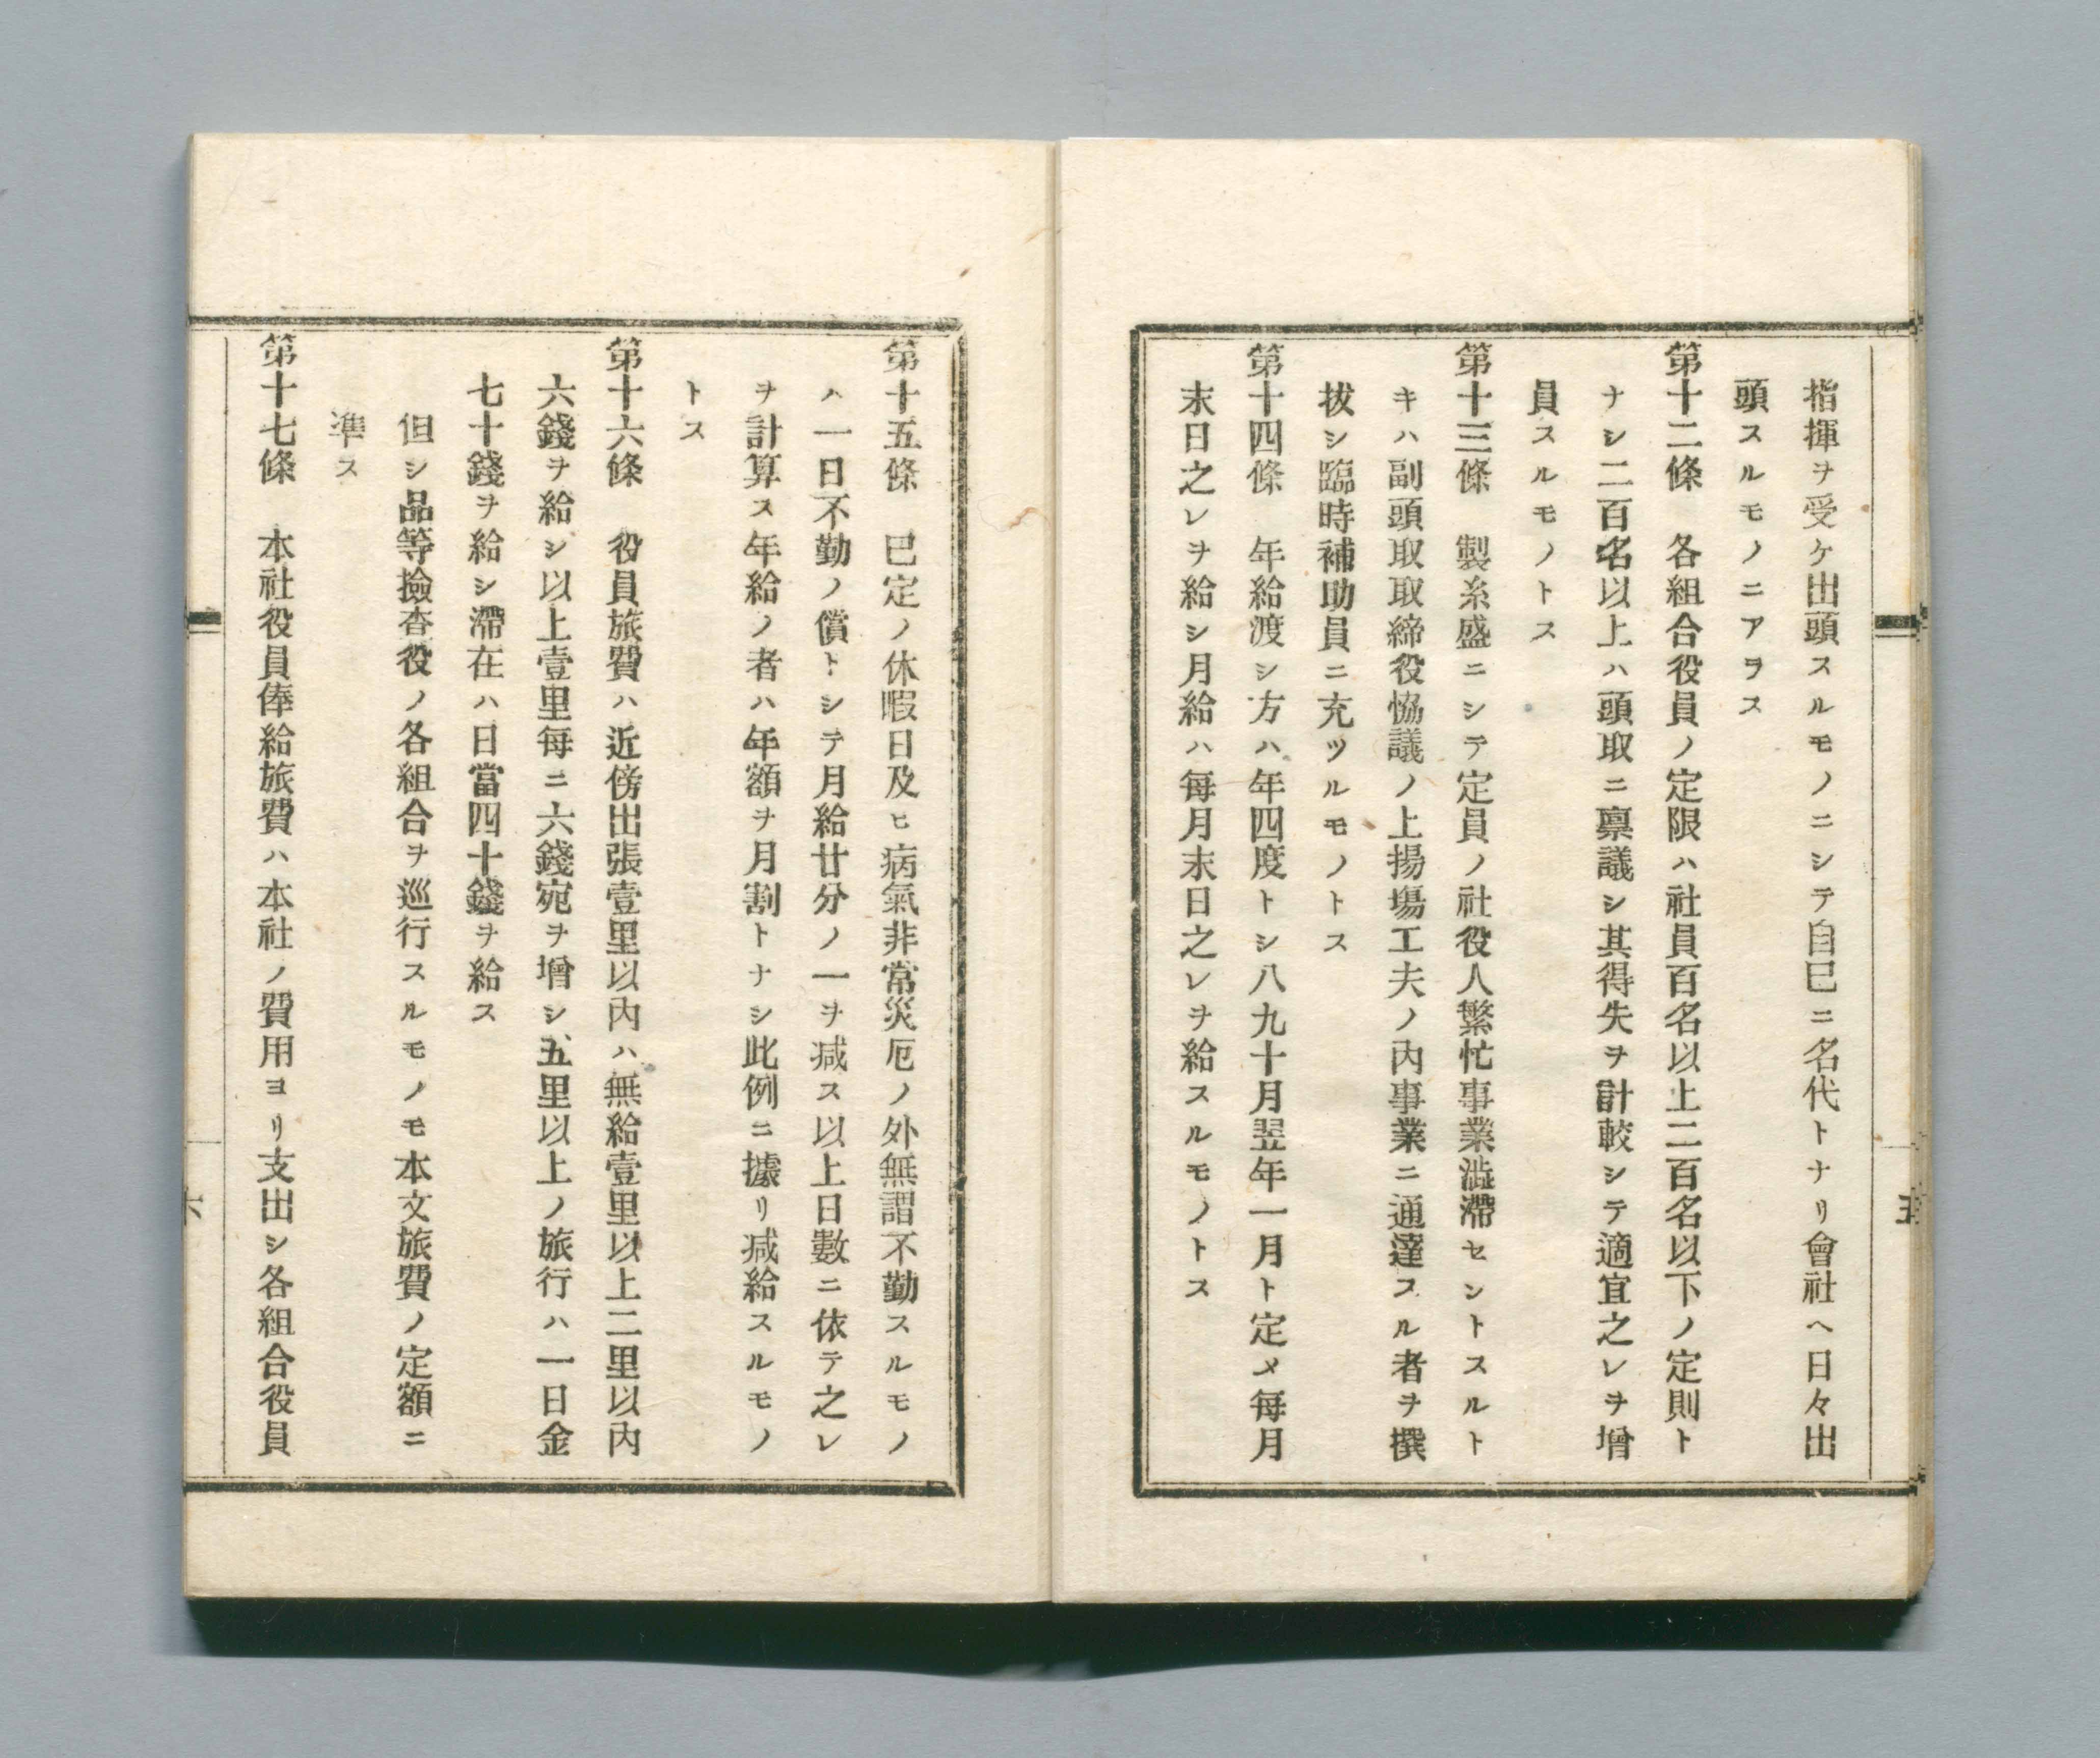 指揮ヲ受ケ出頭スルモノニシテ自巳ニ名代トナリ會社ヘ日々出
頭スルモノニアラス
第十二條　各組合役員ノ定限ハ社員百名以上二百名以下ノ定則ト
ナシ二百名以上ハ頭取ニ禀議シ其得失ヲ計較シテ適宜之レヲ增
員スルモノトス
第十三條　製糸盛ニシテ定員ノ社役人繁忙事業澁滯セントスルト
キハ副頭取取締役恊議ノ上揚塲工夫ノ內事業ニ通達スル者ヲ撰
拔シ臨時補助員ニ充ツルモノトス
第十四條　年給渡シ方ハ年四度トシ八九十月翌年一月ト定メ每月
末日之レヲ給シ月給ハ每月末日之レヲ給スルモノトス
五
第十五條　巳定ノ休暇日及ヒ病氣非常災厄ノ外無謂不勤スルモノ
ハ一日不勤ノ償トシテ月給廿分ノ一ヲ减ス以上日數ニ依テ之レ
ヲ計算ス年給ノ者ハ年額ヲ月割トナシ此例ニ據リ减給スルモノ
トス
第十六條　役員旅費ハ近傍出張壹里以內ハ無給壹里以上二里以內
六錢ヲ給シ以上壹里每ニ六錢宛ヲ增シ五里以上ノ旅行ハ一日金
七十錢ヲ給シ滯在ハ日當四十錢ヲ給ス
但シ品等撿査役ノ各組合ヲ巡行スルモノモ本文旅費ノ定額ニ
準ス
第十七條　本社役員俸給旅費ハ本社ノ費用ヨリ支出シ各組合役員
六